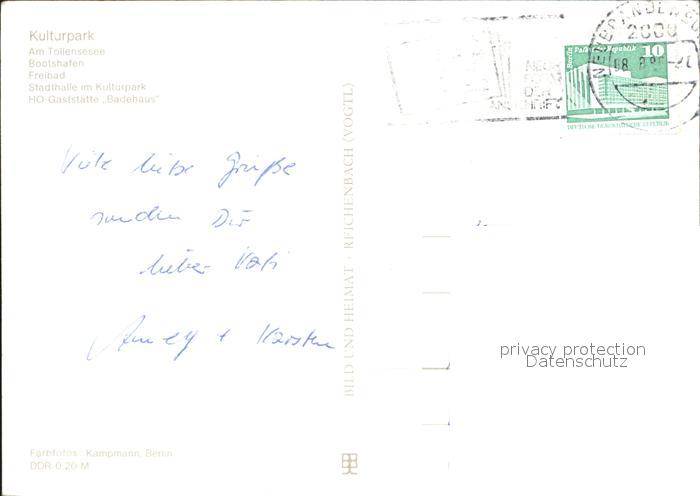 Kulturpark
Am Tollensesee
Bootshafen
Freibad
Stadthalle im Kulturpark
HO-Gaststätte „Badehaus"
Viele liebe Grüße
senden Dir
lieber Vati
+ Karsten
Farbfotos: Kampmann, Berlin
DDR 0,20 M
BILD UND HEIMAT · REICHENBACH (VOGTL)
Berlin Palast d. Republik 10
DEUTSCHE DEMOKRATISCHE REPUBLIK
2000
privacy protection
Datenschutz